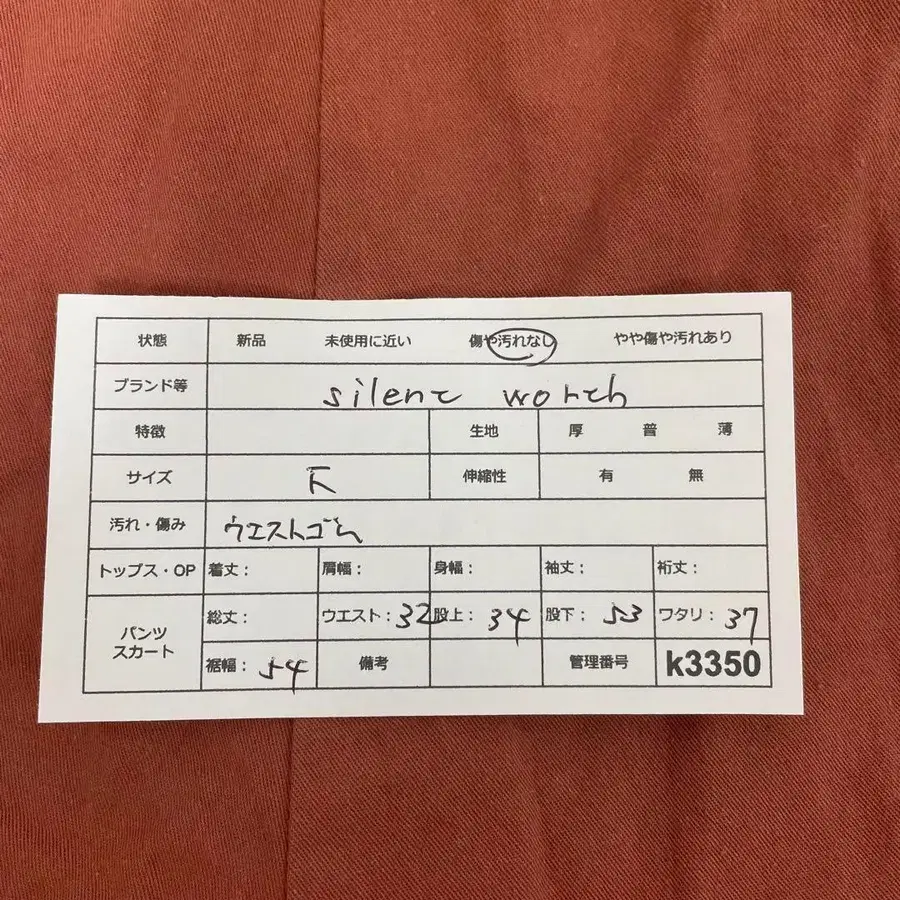 状態 新品 未使用に近い 傷や汚れなし やや傷や汚れあり
ブランド等 silent worth
特徴 生地 厚 普 薄
サイズ F 伸縮性 有 無
汚れ・傷み ウエストゴム
トップス・OP 着丈： 肩幅： 身幅： 袖丈： 裄丈：
パンツ スカート
総丈： ウエスト：32 股上：34 股下：53 ワタリ：37
裾幅：54 備考 管理番号 k3350